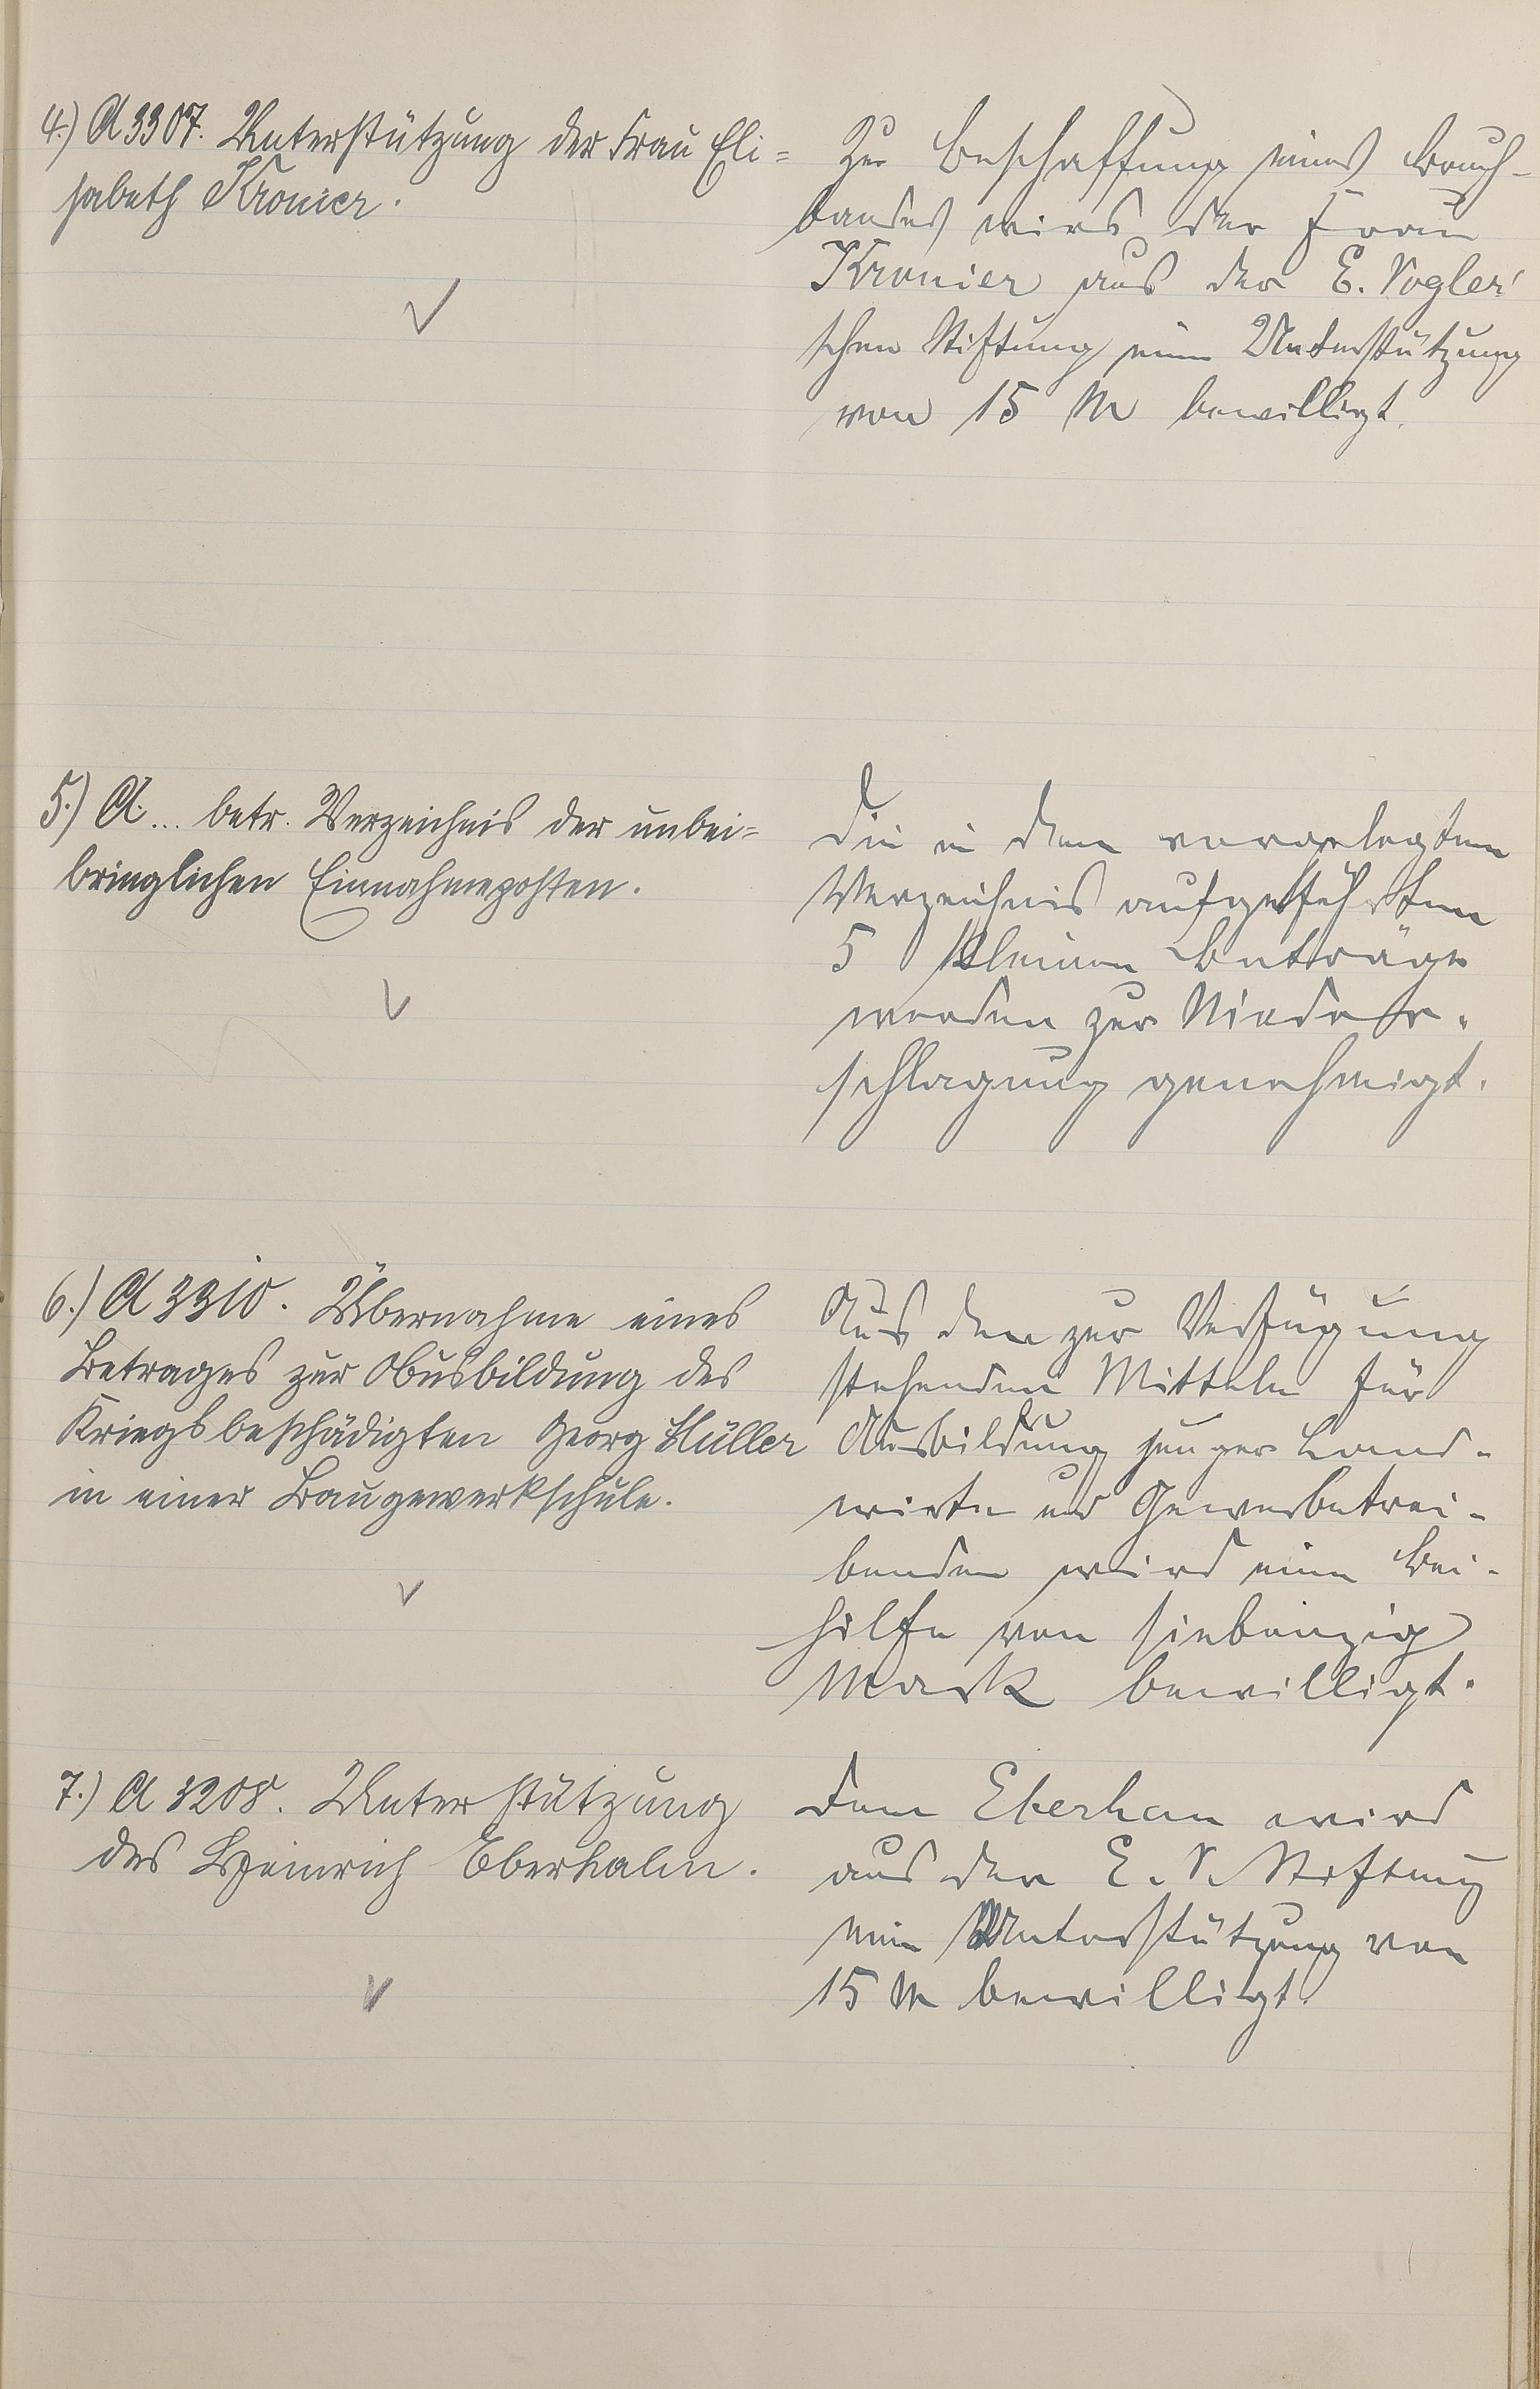 4.) A 3307. Unterstützung der Frau Eli=
sabeth Kronier.
Zur Beschaffung eines Bruch-
bandes wird der Frau
Kronier aus der E. Vogler'
schen Stiftung eine Unterstützung
von 15 M bewilligt.
5.) A... betr. Verzeichnis der unbei=
bringlichen Einnahmeposten.
Die in dem vorgelegten
Verzeichnis aufgeführten
5 kleinen Beträge
werden zur Nieder-
schlagung genehmigt.
6.) A 3310. Übernahme eines
Betrages zur Ausbildung des
Kriegsbeschädigten Georg Müller
in einer Baugewerkschule.
Aus den zur Verfügung
stehenden Mitteln für
Ausbildung junger Land-
wirte und Gewerbetrei-
benden wird eine Bei-
hilfe von siebenzig
Mark bewilligt.
7.) A 3208. Unterstützung
des Heinrich Eberhahn.
Dem Eberhan wird
aus der E. V. Stiftung
eine Unterstützung von
15 M bewilligt.